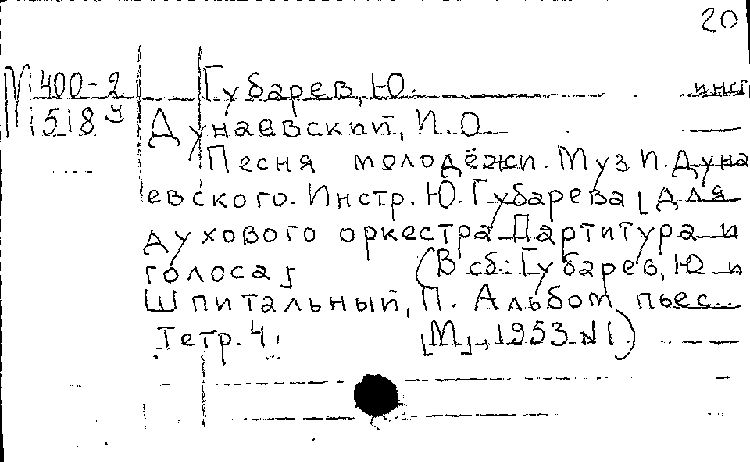 20
М 400-2 Губарев, Ю. инст
518 Дунаевский, И. О.
Песня молодёжи. Муз И. Дуна
евского. Инстр. Ю. Губарева [для
духового оркестра Партитура и
голоса] (В сб.: Губарев, Ю и
Шпитальный, П. Альбом пьес.
Тетр. 4. [М], 1953 №1)